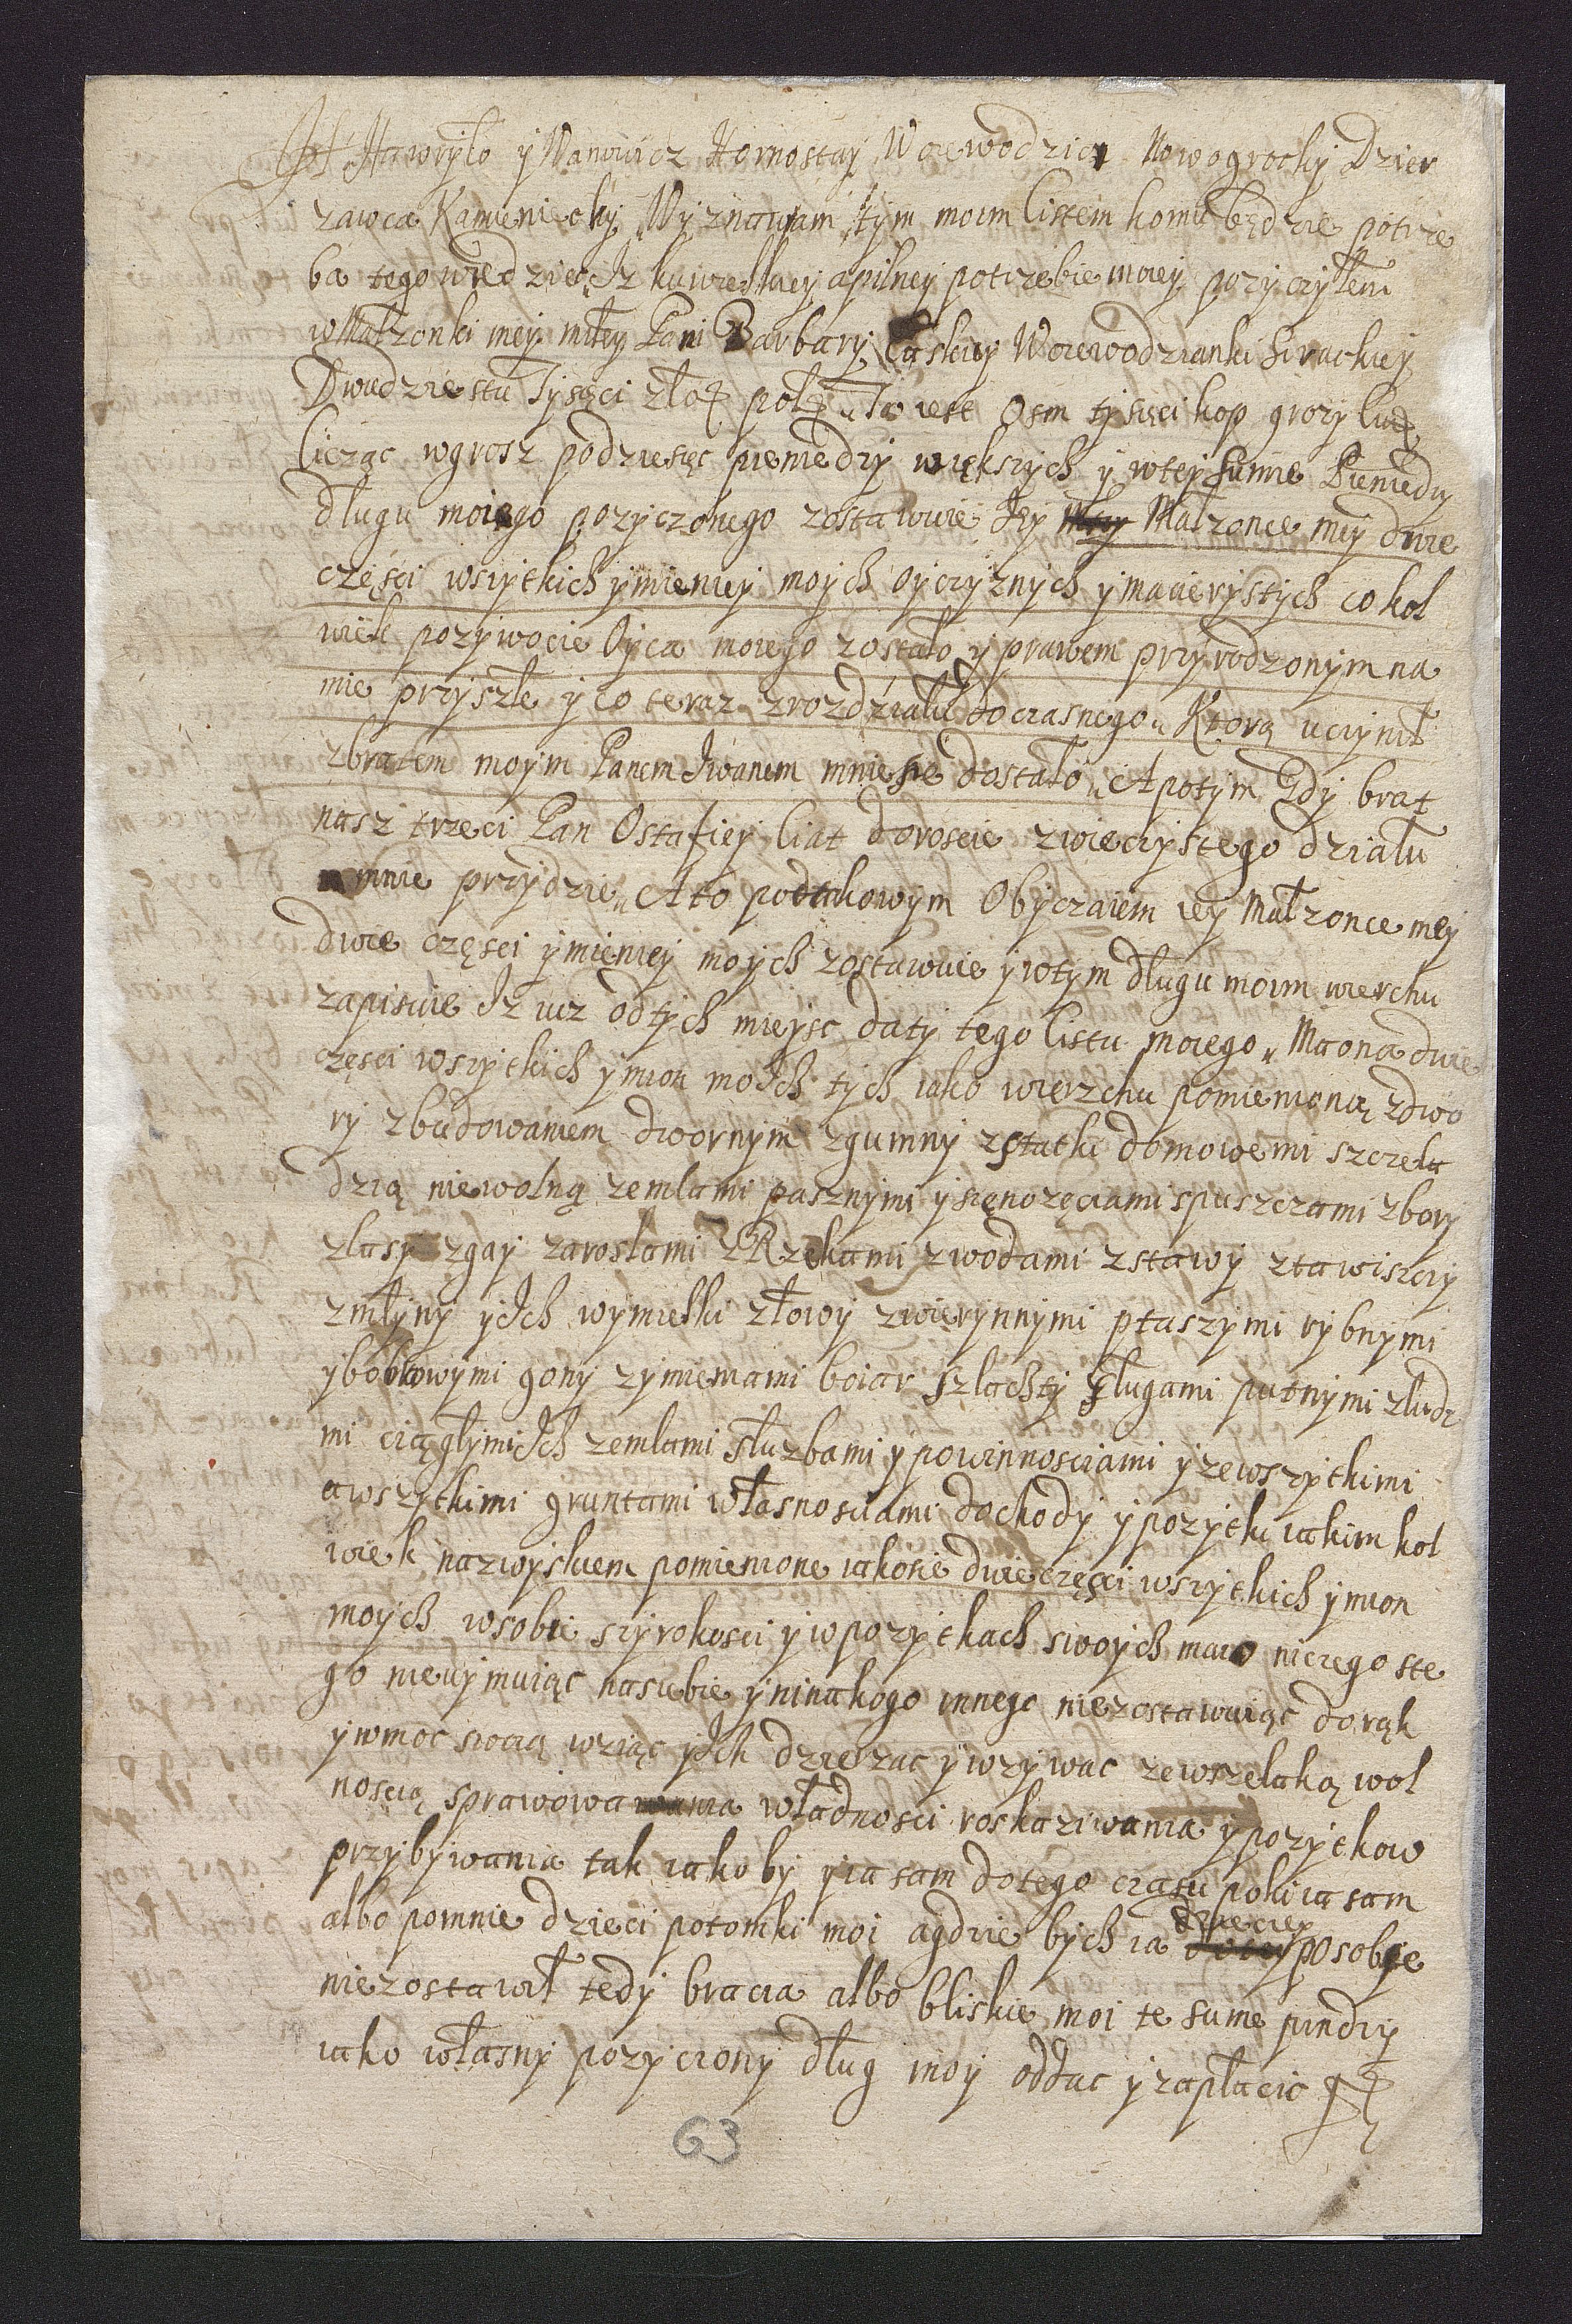 Ja Hawryło ywanowicz Hornostaj Woiewodzicz Nowogrocky Dzier
zawca Kamieniecky Wyznawam tym moim listem komu będzie potrze
ba tego wiedziec, Iz ku wielkiey a pilney potrzebie moiey pozyczyłem
w Małzonki mey miłey Pani Barbary Łaskiey Woiewodzianki Sirackiey
Dwudziestu Tysęci zło: pol: To iest Osm tysięci kop groszy Lit:
licząc w grosz po dziesięc pieniedzy większych y w tey sumie Pieniedzy
długu moiego pozyczonego zostawuię Jey Małzonce mey dwie
częsci wszytkich ymieniey moych oyczyznych y macierzystych co kol
wiek po zywocie Oyca moiego zostało y prawem przyrodzonym na
mie przyszłe y co teraz z rozdziału do czasnego Ktorą uczynił
z bratem moym Panem Iwanem mnie sie dostało, A potym gdy brat
nasz trzeci Pan Ostafiey liat doroscie z wieczystego działu
mnie przydzie, A to pod takowym Obyczaiem iey Małzonce mey
dwie częsci ymieniey moych zostawuie y w tym długu moim wierchu
zapisuie Iz iuz od tych mieysc daty tego listu moiego Ma ona dwie
częsci wszytkich ymion moich tych iako wierzchu pomieniono z dwo
ry z budowaniem dwornym z gumny z statki domowemi szczela
dzią niewolną zemlami pasznymi y sienozęciami s puszczami z bory
z lasy z gay zaroslami z Rzekami z wodami z stawy z tawiszczy
z młyny y Ich wymiełki z łowy zwierynnymi ptaszymi rybnymi
y bobrowymi gony z ymieniami boiar szlachty sługami putnymi z ludz
mi ciągłymi Ich zemlami słuzbami y powinnosciami y ze wszytkimi
a wszytkimi gruntami własnosciami dochody y pozytki iakim kol
wiek nazwyskiem pomienione iako sie dwie częsci wszytkich ymion
moych w sobie szyrokosci y w pozytkach swoych maio niczego s te
go nie uymuiąc na siebie y ni na kogo innego nie zostawuiąc do rąk
y w moc swoią wziąc y Ich dzierzac y wzywac ze wszelaką wol
noscią sprawowania władnosci roskaziwania y pozytkow
przybywania tak iako by y ia sam do tego czasu poki ia sam
albo po mnie dzieci potomki moi a gdzie bych ia dzieciey po sobie
nie zostawił tedy bracia albo bliskie moi te sume pindzy
iako własny pozyczony dług moy oddac y zapłacic
63